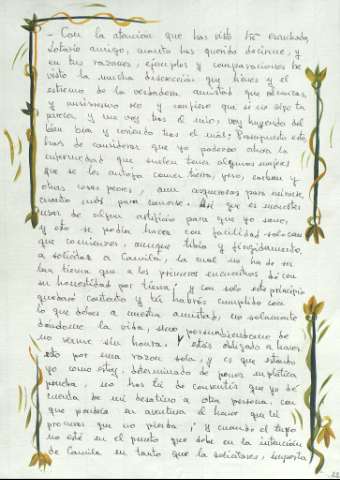 - Con la atención que has visto he escuchado,
Lotario amigo, cuanto has querido decirme, y
en tus razones, ejemplos y comparaciones he
visto la mucha discreción que tienes y el
extremo de la verdadera amistad que alcanzas
y ansimesmo veo y confieso que si no sigo tu
parecer y me voy tras el mío, voy huyendo del
bien y corriendo tras el mal. Presupuesto esto,
has de considerar que yo padezco ahora la
enfermedad que suelen tener algunas mujeres
que se les antoja comer tierra, yeso, carbon y
otras cosas peores, aun asquerosas para mirarse,
cuanto más para comerse. Así que es menester
usar de algun artificio para que yo sane,
y esto se podía hacer con facilidad solo con
que comiences, aunque tibia y fingidamente,
a solicitar a Camila, la cual no ha de ser
tan tierna que a los primeros encuentros dé con
su honestidad por tierra; y con solo este principio
quedaré contento y tú habrás cumplido con
lo que debes a nuestra amistad, no solamente
dandome la vida, sino persuadiendome de
no verme sin honra. Y estás obligado a hacer
esto por una razon sola, y es que estando
yo como estoy, determinado de poner en plática
prueba, no has tú de consentir que yo dé
cuenta de mi desatino a otra persona, con
que pondría en aventura el honor que tú
procuras que no pierda; y cuando el tuyo
no esté en el punto que debe en la intención
de Camila en tanto que la solicitares, importa